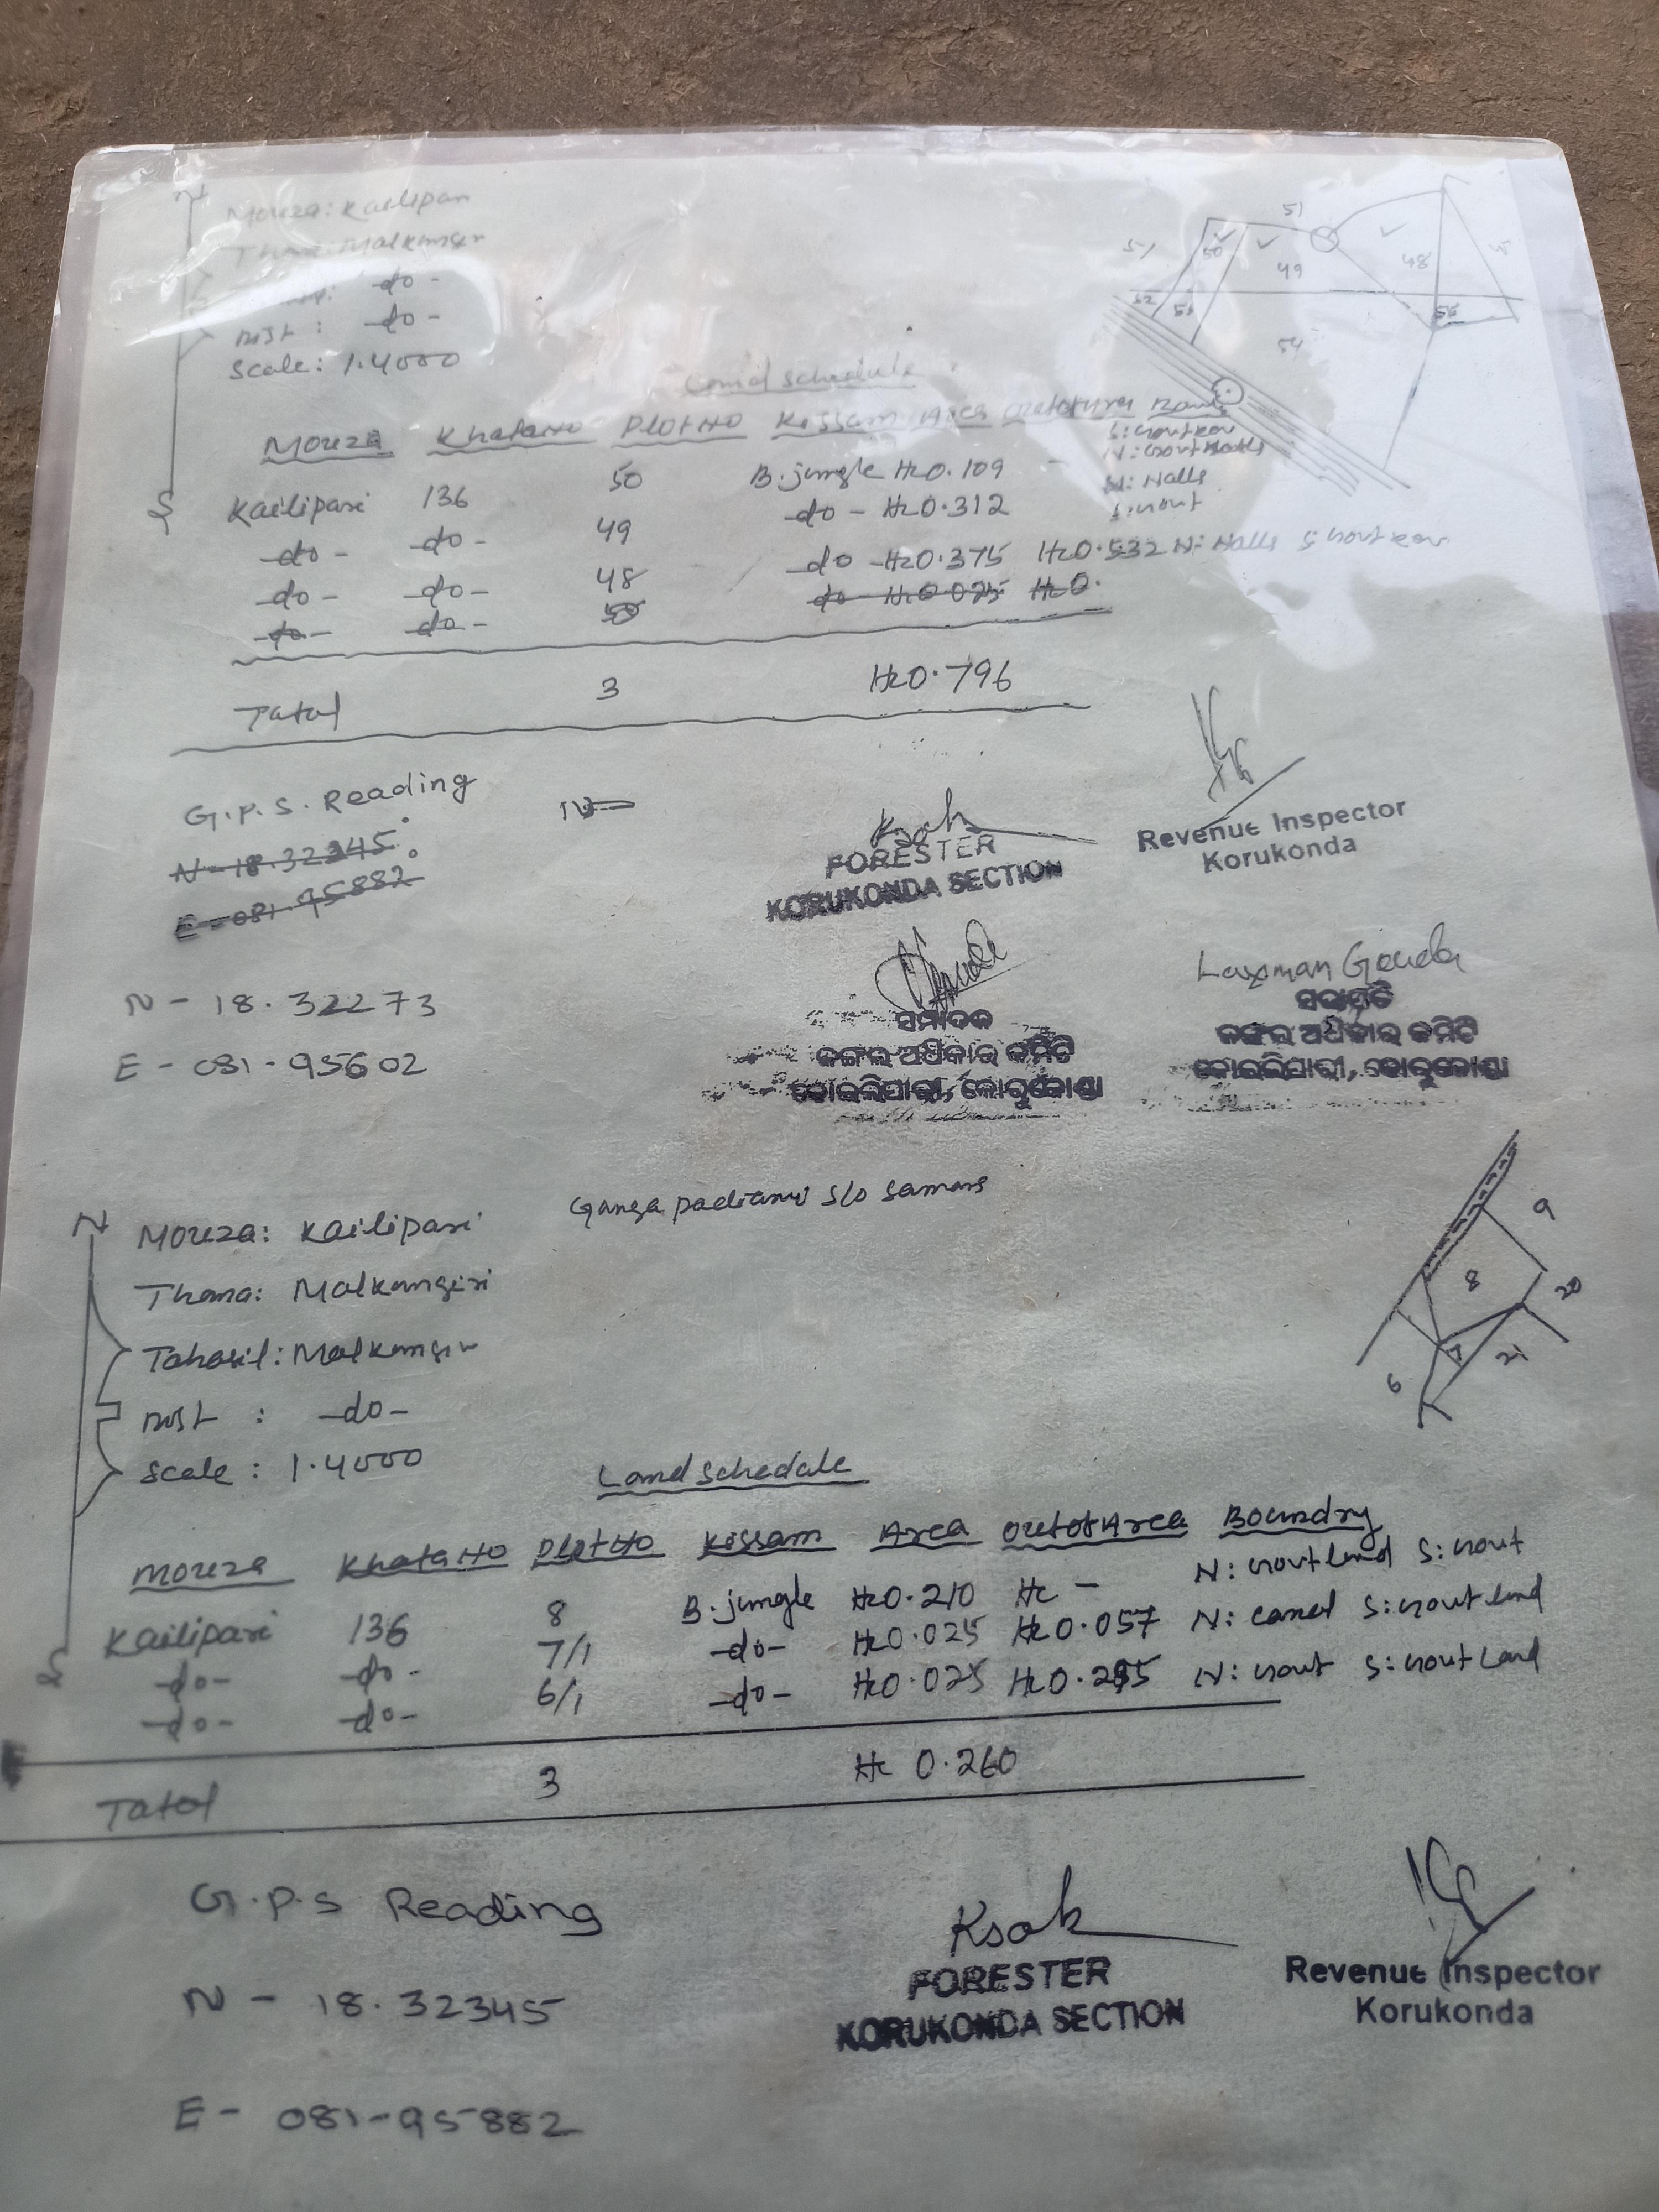 N
Mouza: Kailipari
Thana: Malkangiri
-do-
Dist : -do-
Scale: 1.4000
51
51 50 49 48
52 53 54 55
Land schedule
Mouza Khata No Plot No Kissam Area Out of Area
Kailipari 136 50 B.jungle Hc0.109 -
-do- -do- 49 -do- Hc0.312
N: Nalls
-do- -do- 48 -do- Hc0.375 Hc0.532 N: Nalls
-do- -do- -do- Hc0.025 Hc0.
S
Tatal 3 Hc0.796
G.P.S. Reading
N - 18.32345
E - 081.95882
N - 18.32273
E - 081-95602
Ksah
FORESTER
KORUKONDA SECTION
Revenue Inspector
Korukonda
ସମ୍ପାଦକ
ଜଙ୍ଗଲ ଅଧିକାର କମିଟି
କୋଇଲିପାରୀ, କୋରୁକୋଣ୍ଡା
Laxman Gouda
ସଭାପତି
ଜଙ୍ଗଲ ଅଧିକାର କମିଟି
କୋଇଲିପାରୀ, କୋରୁକୋଣ୍ଡା
Ganga padiami S/o Samara
N
Mouza: Kailipari
Thana: Malkangiri
Tahasil: Malkangiri
Dist : -do-
Scale : 1.4000
9
8
20
7
21
6
Land schedale
Mouza Khata No Plot No Kissam Area Out of Area Boundry
Kailipari 136 8 B.jungle Hc0.210 Hc - N: Govt land S: Govt
-do- -do- 7/1 -do- Hc0.025 Hc0.057 N: canal S: Govt land
-do- -do- 6/1 -do- Hc0.025 N: Govt S: Govt Land
S
Tatal 3 Hc 0.260
G.P.S Reading
N - 18.32345
E - 081-95882
Ksah
FORESTER
KORUKONDA SECTION
Revenue Inspector
Korukonda